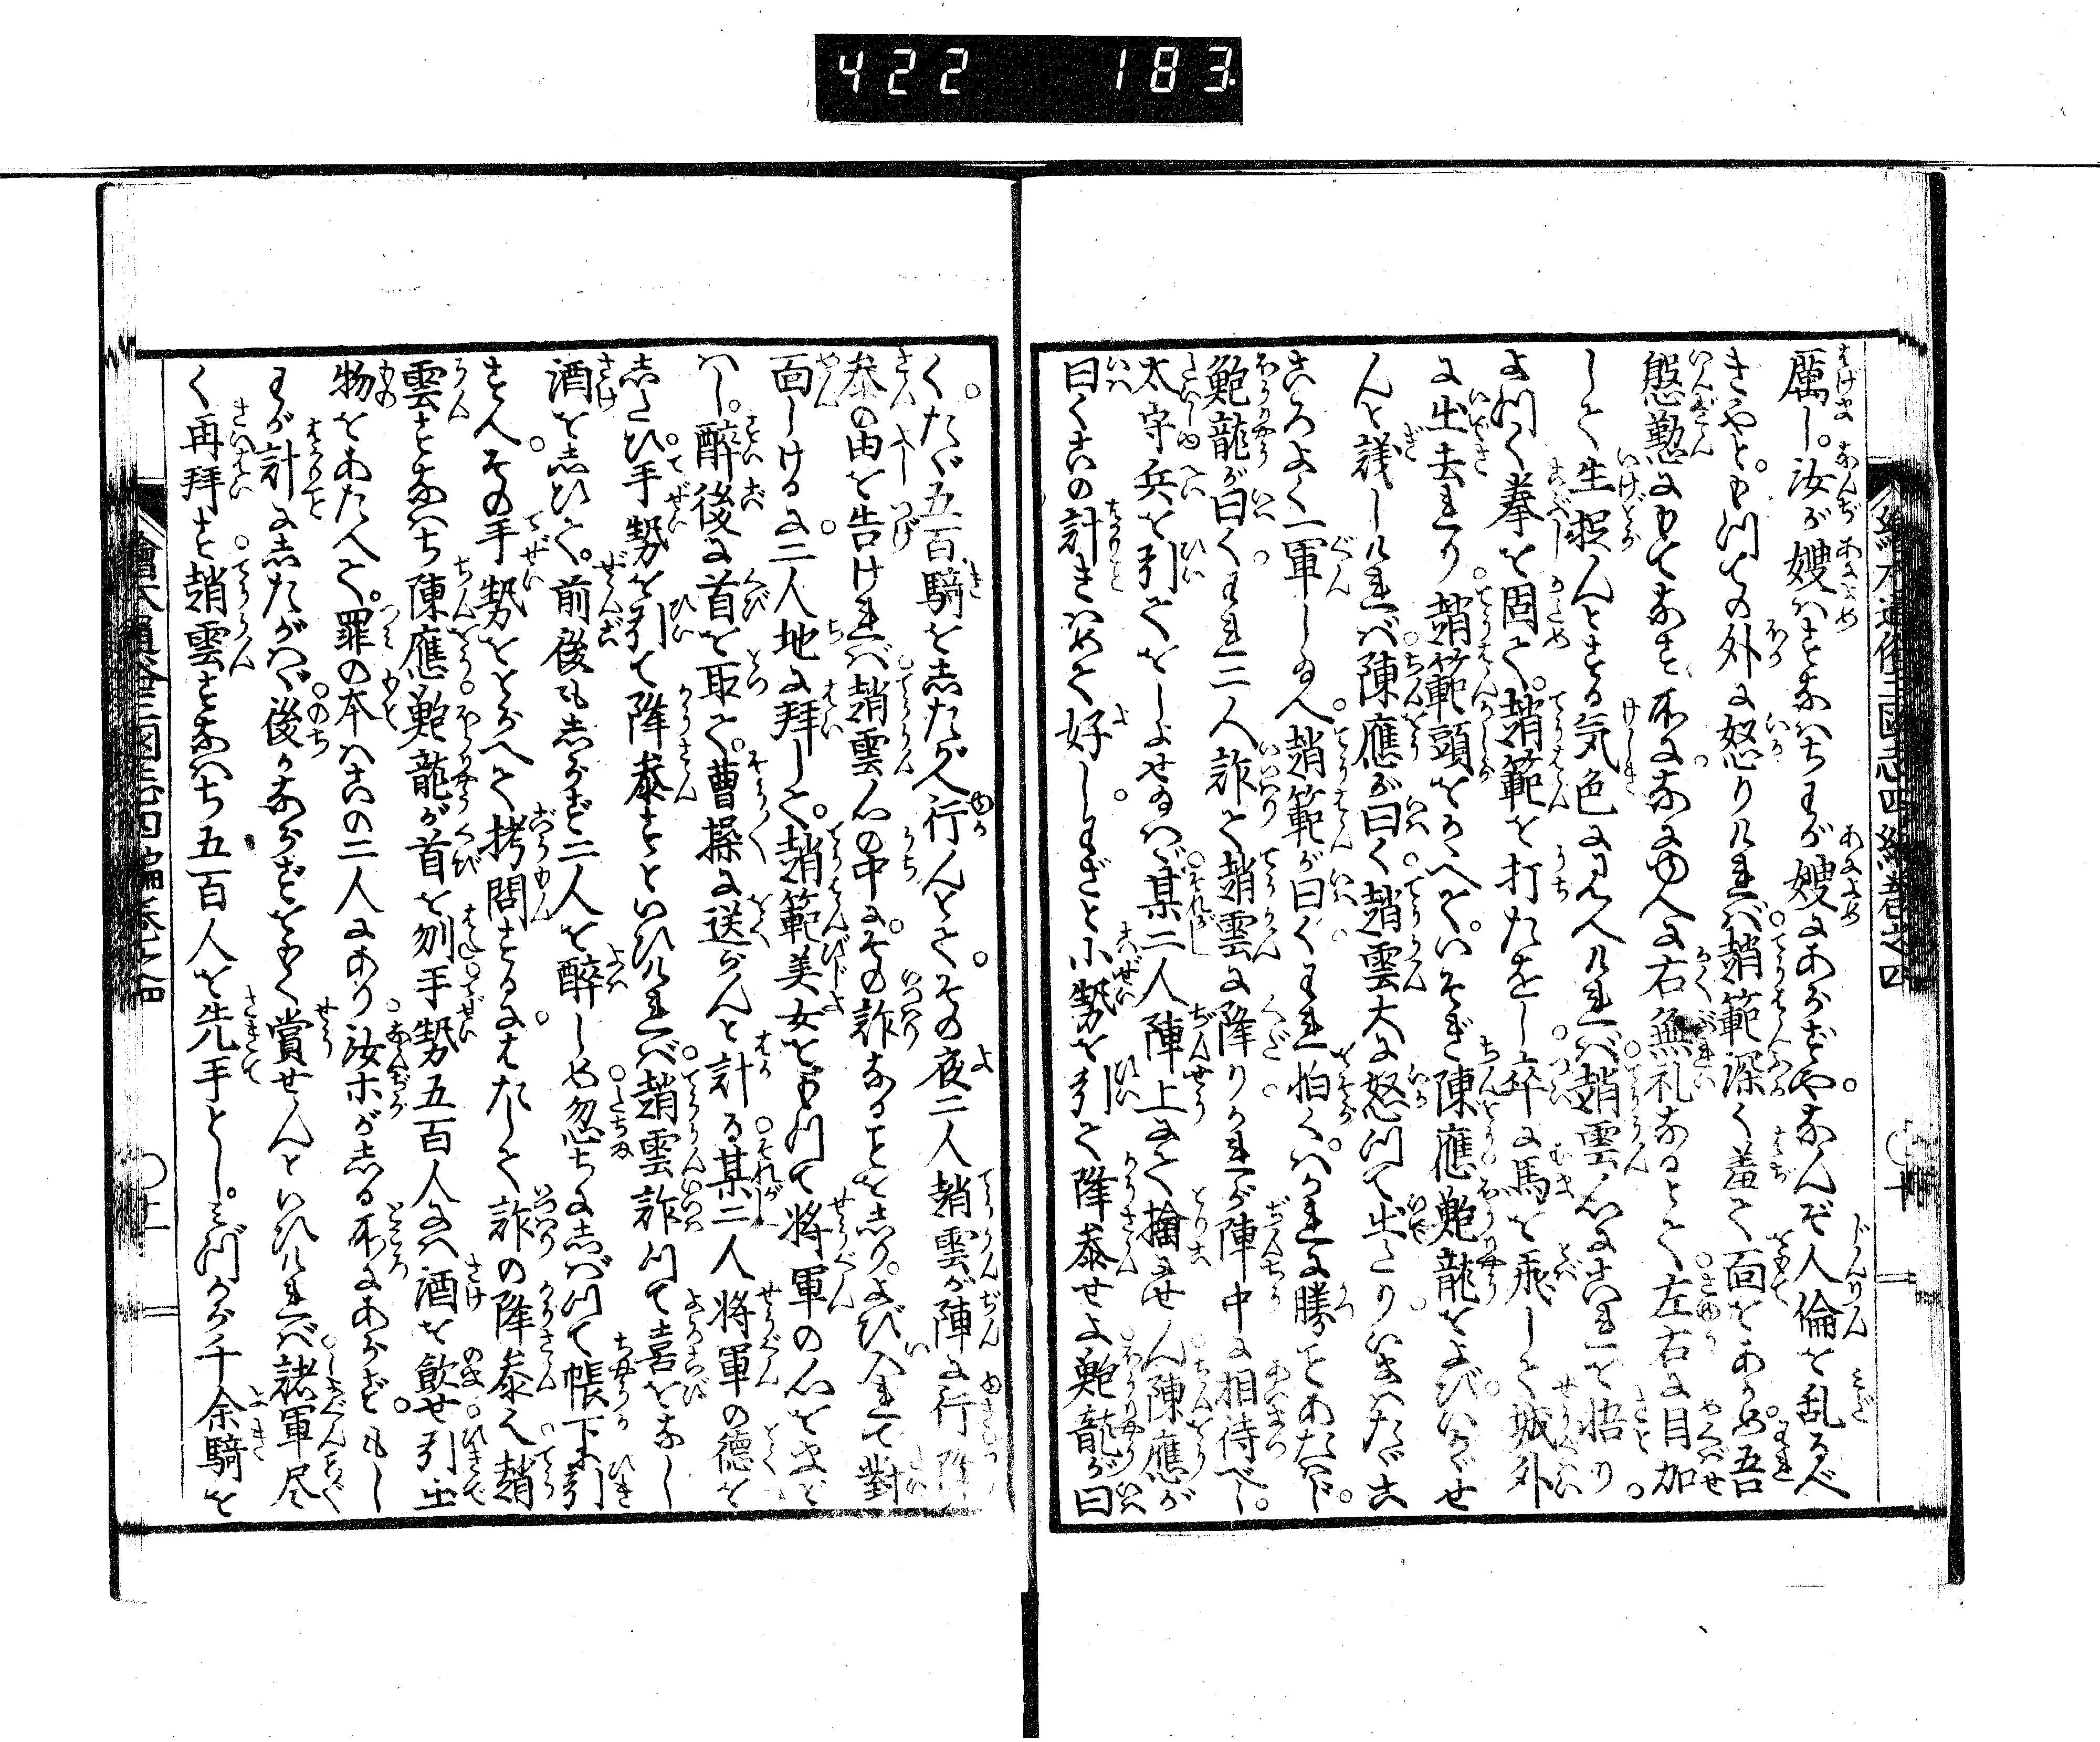 422 183
厲し。汝が嫂はすなはちわが嫂にあらずや。なんぞ人倫を乱るべ
きやと。もつての外に怒りければ趙範深く羞て面をあかめ。吾
慇懃にもてなす所になにゆへに右無礼なるとて左右に目加
して生捉んとする気色に見へければ趙雲心にこれを悟り。
よつく拳を固て。趙範を打たをし卒に馬を飛して城外
に出去れり趙範頭をかゝへて。いそぎ陳應鮑龍をよびいだせ
んと議しければ陳應が曰く趙雲大に怒つて出たりいまはたゞ
こゝろよく一軍し給へ趙範が曰くわれ怕くはかれに勝ことあたはじ。
鮑龍が曰くわれ二人詐て趙雲に降りかれが陣中に相待べし。
太守兵を引てをしよせ給はゞ某二人陣上にて擒ません陳應が
曰くこの計きはめて好し。わざと小勢を引て降参せよ鮑龍が曰
く。たゞ五百騎をしたがへ行んとて。その夜二人趙雲が陣に行降
参の由を告ければ趙雲心の中に。その詐なることをしり。よび入れて對
面しけるに二人地に拜して。趙範美女をもつて将軍の心をまど
はし。醉後に首を取て。曹操に送らんと計る某二人将軍の德を
したひ手勢を引て降参すといひければ趙雲詐つて喜をなし
酒をしひて。前後もしらず二人を醉しめ忽ちにしばつて帳下に引
すへ。その手勢をとらへて拷問するにはたして詐の降参也趙
雲すなはち陳應鮑龍が首を刎手勢五百人には酒を飲せ引出
物をあたへて。罪の本はこの二人にあり汝ホがしる所にあらず。もし
わが計にしたがはゞ後かならずをもく賞せんといひければ諸軍尽
く再拜す趙雲すなはち五百人を先手とし。みづから千余騎を